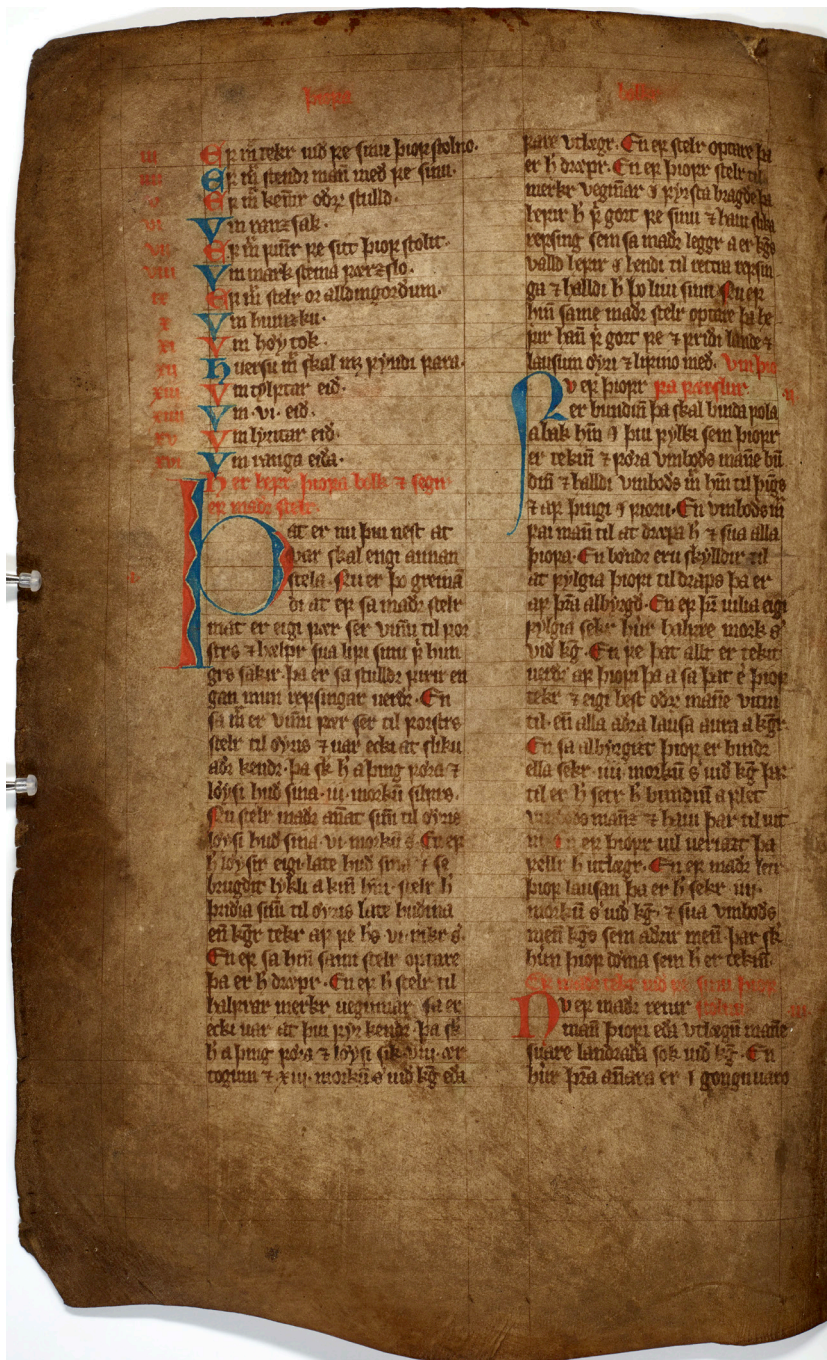 þiofa
bolkr
iii Ef m̄ tekr uið fe sinu þiof stolno.
iiii Ef m̄ stendr mann með fe sinu.
v Ef m̄ kenir oðꝛ stulld.
vi Vm ranzsak.
vii Ef m̄ finr fe sitt þiof stolit.
viii Vm mark steina
ix Ef m̄ stelr or alldingorðum.
x Vm hunzku.
xi Vm høy tok.
xii Huersu m̄ skal fara.
xiii Vm tylftar eið.
xiiii Vm .vi. eið.
xv Vm lyritar eið.
xvi Vm ranga eiða.
h er hefr þiofa bolk ⁊ segir
er maðr stelr.
Þat er nu þui nest at
uar skal engi annan
stela. Nu er þo greinan
di at ef sa maðr stelr
mat er eigi fær ser uinnu til foꝛ
strs ⁊ hælpr sua lifi sinu f̄ hun
grs sakir. þa er sa stulldr firir en
gan mun refsingar uerðr. En
sa m̄ er uinnu fær ser til fostrs
stelr til øyris ⁊ uar ecki at sliku
aðꝛ kendr. þa sk h̄ a þing føra ⁊
løysi huð sina .iii. morkū silfrs.
Nu stelr maðr annat sinn til øyris
løysi huð sina .vi. morkū s. En ef
h̄ løysir eigi late huð sina ⁊ se
brugðit lykli a kinn hm̄. stelr h̄
þriðia sinn til øyris late huðina
en kgr tekr af fe hs vi. mkr s.
En ef sa hinn sami stelr optare
þa er h̄ dræpr. En ef h̄ stelr til
halfrar merkr ueginnar sa er
ecki uar at þui fyr kendr. þa sk
h̄ a þing føra ⁊ løysi sik .viii. ær
togum ⁊ .xiii. morkū s uið kg eða
fare vtlægr. En ef stelr optare þa
er h̄ dræpr. En ef þiofr stelr til
merkr veginnar i fyrsta bragðe þa
hefir h̄ f̄ gort fe sinu ⁊ haui slika
refsing sem sa maðr leggr a er kgs
valld hefir i hendi til rettra refsin
ga ⁊ halldi h̄ þo liui sinu. En ef
hinn same maðr stelr optare þa he
fir hann f̄ gort fe ⁊ friði lande ⁊
lausum øyri ⁊ lifino með. Vm þio
fa færslur. ii
Nv er þiofr
er bundinn þa skal binda fola
a bak hm̄ i þui fylki sem þiofr
er tekinn ⁊ føra vmboðs manne bu
dinn ⁊ halldi vmboðs m̄ hm̄ til þīgs
⁊ af þingi i fioru. En vmboðs m̄
fai mann til at dræpa h̄ ⁊ sua alla
þiofa. En bøndr eru skylldir til
at fylgia þiofi til draps þa er
af þra abyrgð. En ef þr̄ uilia eigi
fylgia sekr huer halfre mork s
vid kg. En fe þat allt er tekit
uerðr af þiofi þa a sa þat e þiof
tekr ⁊ eigi hest oðꝛ manne vinni
til. en alla aðra lausa aura a kgr.
En sa abyrgiet þiof er bindr
ella sekr .iiii. morkū s uið kg þar
til er h̄ setr h̄ bundinn a flet
vmboðs mans ⁊ haui þar til uit
ni. En ef þiofr uil ueriazt þa
fellr h̄ utlægr. En ef maðr letr
þiof lausan þa er h̄ sekr .iiii.
morkū s uið kg. ⁊ sua vmboðs
menn kgs sem aðrir menn. þar sk
huern þiof døma sem h̄ er tekinn.
Ef maðr tekr uið fe sinu þiof
stolno. iii.
Nv ef maðr reittir
mann þiofi eða vtlægū manne
suare landraða sok uið kg. En
huer þra annara er i gonguuaro